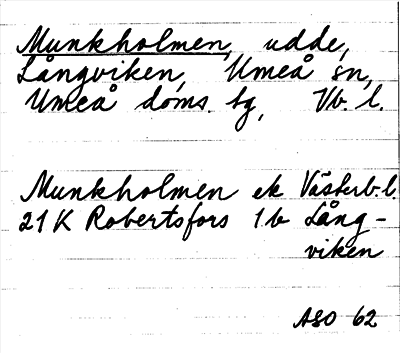 Munkholmen, udde,
Långviken, Umeå sn,
Umeå doms. tg, Vb. l.
Munkholmen ek Västerb. l.
21 K Robertsfors 1 b Lång-
viken
ASO 62